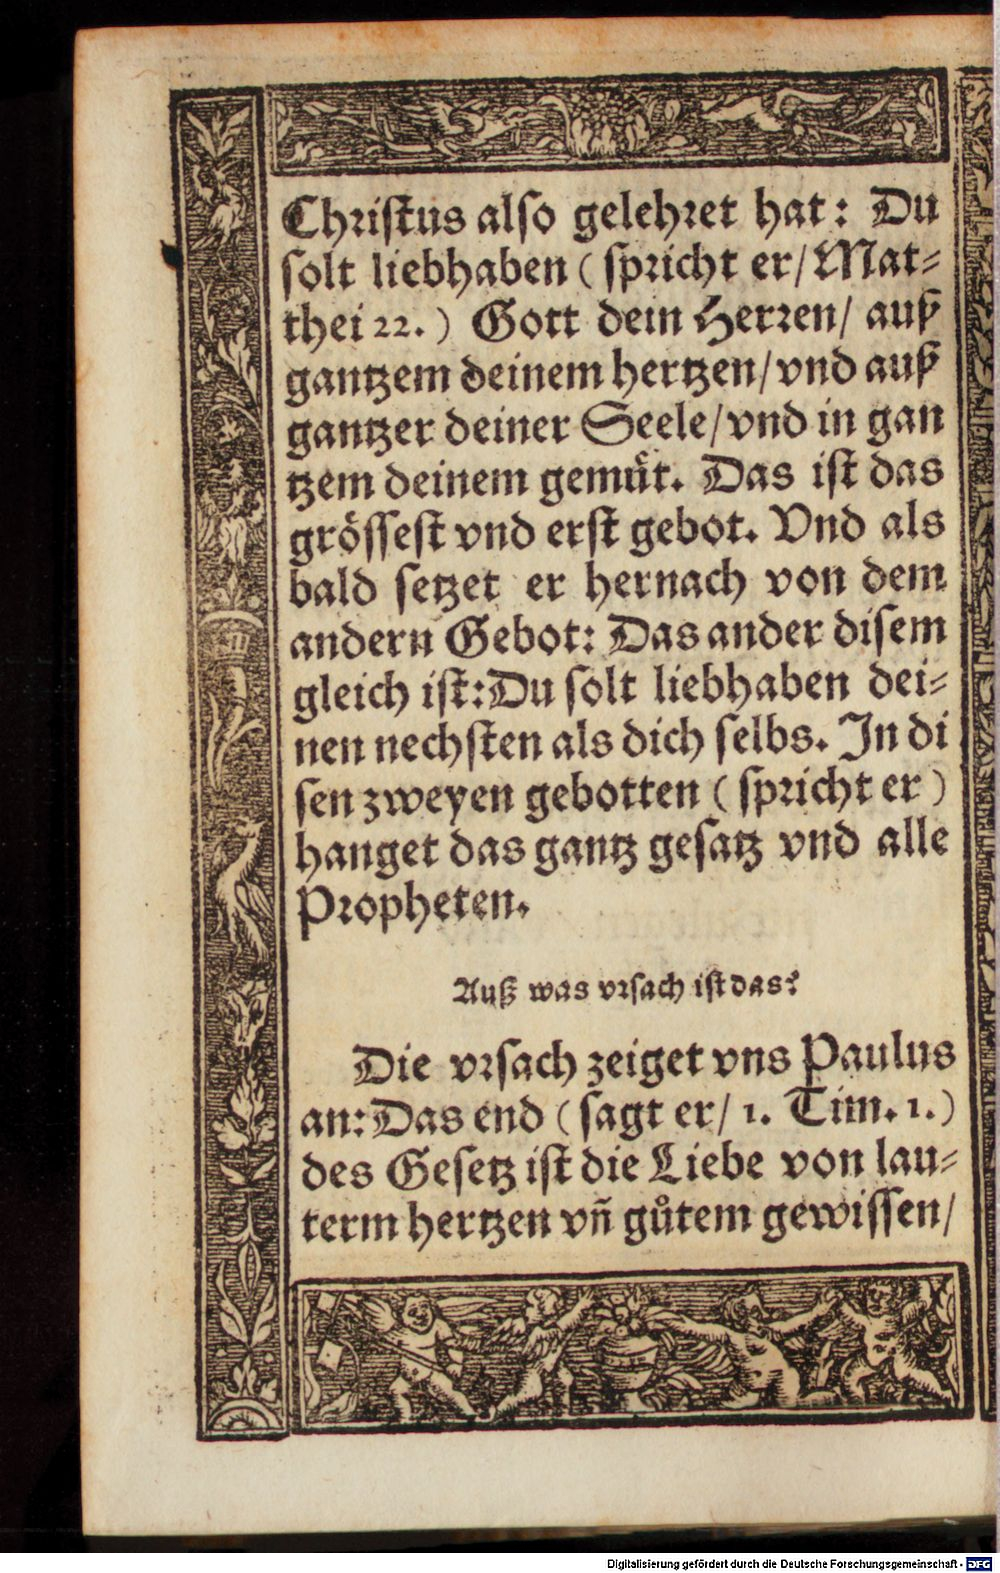 Christus also gelehret hat: Du
solt liebhaben (spricht er/ Mat-
thei 22.) Gott dein Herren/ auß
gantzem deinem hertzen/ vnd auß
gantzer deiner Seele/ vnd in gan
tzem deinem gemuͤt. Das ist das
grössest vnd erst gebot. Vnd als
bald setzet er hernach von dem
andern Gebot: Das ander disem
gleich ist: Du solt liebhaben dei-
nen nechsten als dich selbs. In di
sen zweyen gebotten (spricht er)
hanget das gantz gesatz vnd alle
Propheten.
Auß was vrsach ist das?
Die vrsach zeiget vns Paulus
an: Das end (sagt er/ 1. Tim. 1.)
des Gesetz ist die Liebe von lau-
term hertzen vñ guͦtem gewissen/
Digitalisierung gefördert durch die Deutsche Forschungsgemeinschaft - DFG